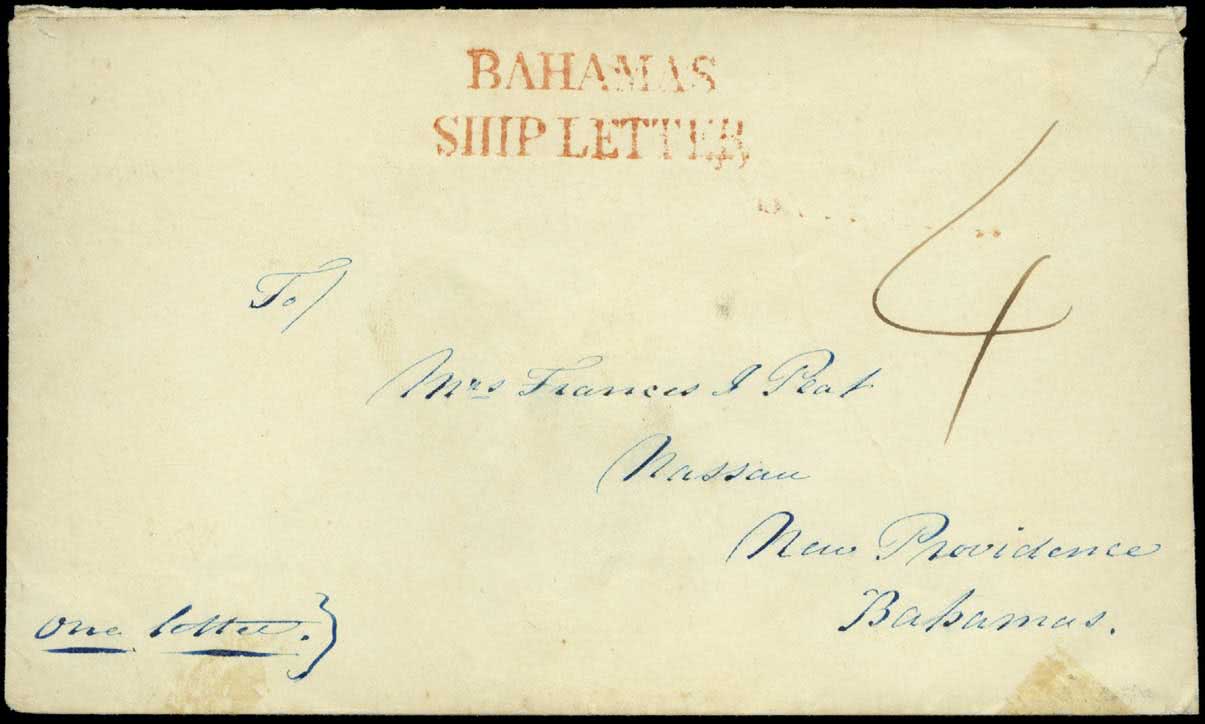 BAHAMAS
SHIP LETTER
4
To/
Mrs Frances J Peat
Nassau
New Providence
Bahamas.
One letter.}